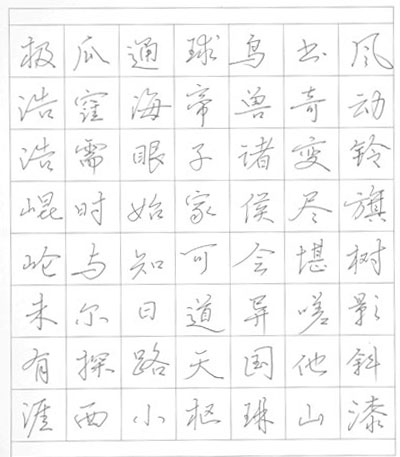 风动铃旗树影斜漆
书奇变尽堪嗟他山
鸟兽诸侯会异国琳
球帝子家可道天枢
通海眼始知日路小
瓜窪需时与尔探西
极浩浩崐崘未有涯